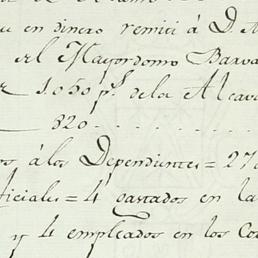 en dinero remiti á D.
el Mayordomo Barva
1050 p.s de la Alcava
820
á los Dependientes = 27
ficiales = 4 gastados en la
y 4 empleados en los Co